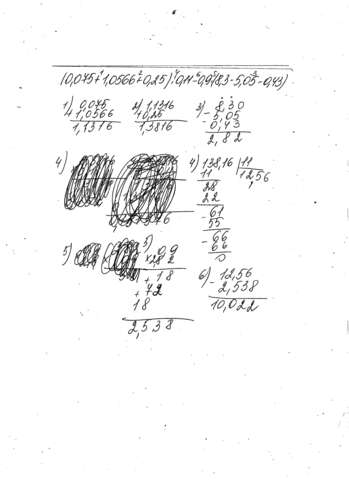 (0,075+1,0566+0,25):0,11-0,9(8,3-5,05-0,43)
1) 0,075 2) 1,1316 3) 8,30
+1,0566 +0,25 - 5,05
1,1316 1,3816 - 0,43
2,82
4) 4) 138,16 |11
11 12,56
28
22
- 61
55
- 66
66
0
5) 5) 0,9
× 2,82
+ 18
+ 72
18
2,538
6) 12,56
- 2,538
10,022